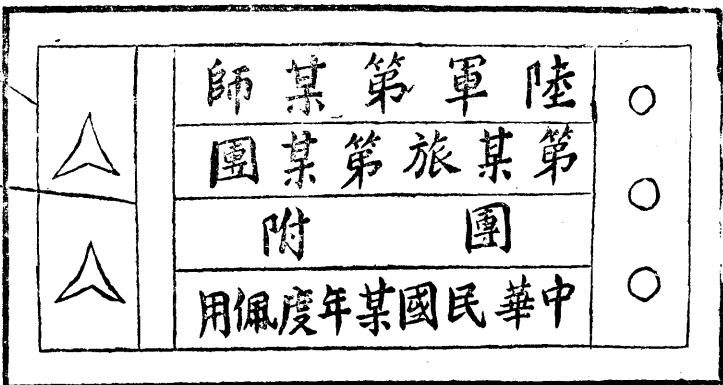 陸軍第某師
第某旅第某團
團附
中華民國某年度佩用